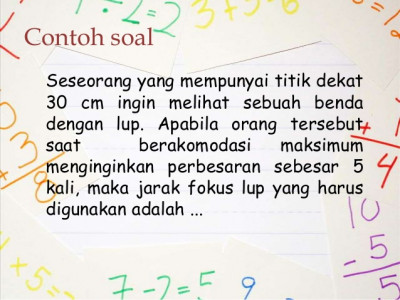 1÷2=2
3+3=6
Contoh soal
Seseorang yang mempunyai titik dekat
30 cm ingin melihat sebuah benda
dengan lup. Apabila orang tersebut
saat berakomodasi maksimum
menginginkan perbesaran sebesar 5
kali, maka jarak fokus lup yang harus
digunakan adalah ...
+3
8
+1
4
10
-5
5
+5=
7-2=5
9